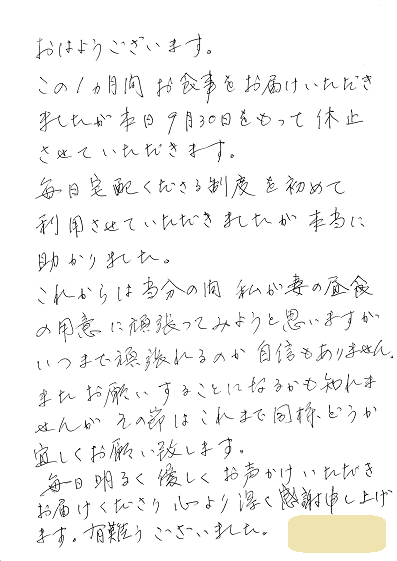 おはようございます。
この1カ月間 お食事をお届けいただき
ましたが本日 9月30日をもって 休止
させていただきます。
毎日宅配くださる制度 を初めて
利用させていただきましたが 本当に
助かりました。
これからは当分の間 私が妻の昼食
の用意 に頑張ってみようと思いますが
いつまで頑張れるのか 自信もありません。
またお願いすることになるかも知れま
せんが その節は これまで同様、どうか
宜しくお願い致します。
毎日明るく 優しく お声かけ いただき
お届けくださり 心より深く感謝申し上げ
ます。有難うございました。